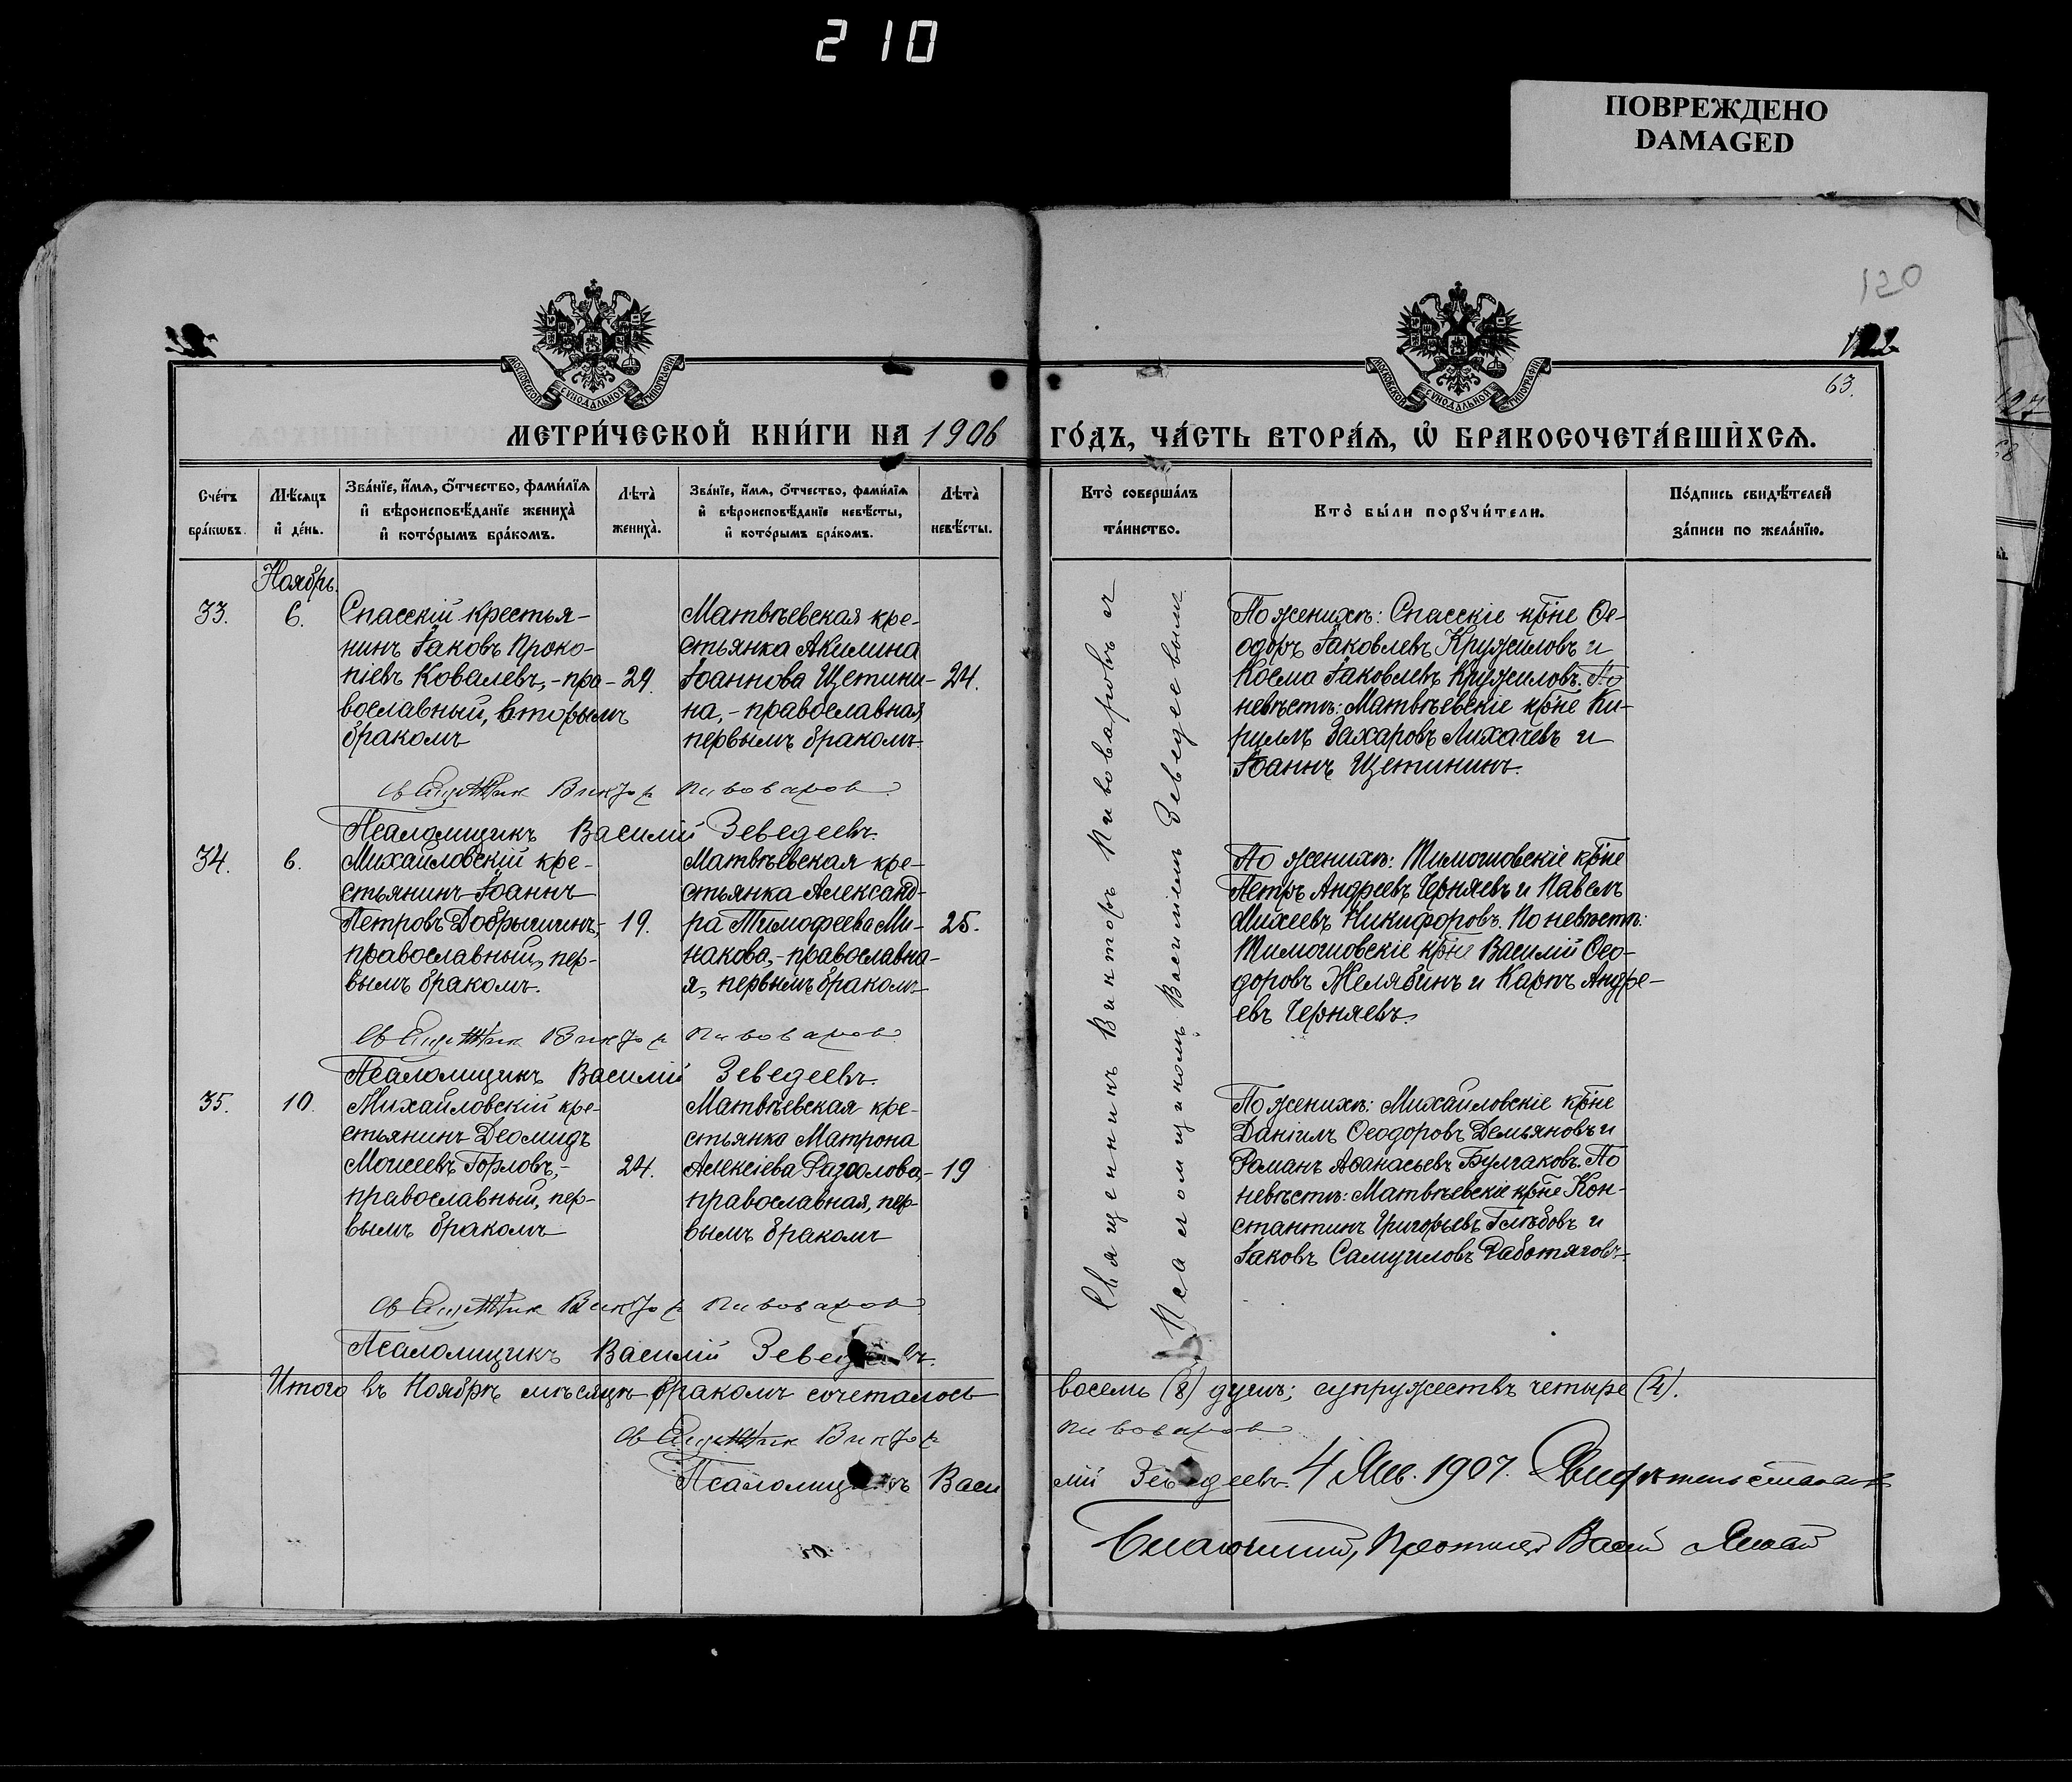 210
ПОВРЕЖДЕНО
DAMAGED
120
122
63.
МОСКОВСКОЙ СѴНОДАЛЬНОЙ ТИПОГРАФІИ
МОСКОВСКОЙ СѴНОДАЛЬНОЙ ТИПОГРАФІИ
МЕТРИ́ЧЕСКОЙ КНИ́ГИ НА 1906 ГО́ДЪ, ЧА́СТЬ ВТОРА́Ѧ, Ѽ БРАКОСОЧЕТА́ВШИХСѦ.
Сче́тъ
бра́кѡвъ.
Мѣ́сяцъ
и҆ де́нь.
Зва́нїе, и҆́мѧ, ѻ҆́тчество, фами́лїѧ
и҆ вѣроисповѣ́данїе жениха̀
и҆ кото́рымъ бра́комъ.
Лѣта̀
жениха̀.
Зва́нїе, и҆́мѧ, ѻ҆́тчество, фами́лїѧ
и҆ вѣроисповѣ́данїе невѣ́сты,
и҆ кото́рымъ бра́комъ.
Лѣта̀
невѣ́сты.
Кто̀ соверша́лъ
та́инство.
Кто̀ бы́ли порꙋчи́тели.
По́дпись свидѣ́телей
за́писи по жела́нїю.
Ноябрь.
33.
6.
Спасскій крестья-
нинъ Іаковъ Проко-
піевъ Ковалевъ,- пра-
вославный, вторымъ
бракомъ
29.
Матвѣевская кре-
стьянка Акилина
Іоаннова Щетини-
на,- православная
первымъ бракомъ
24.
По женихѣ: Спасскіе кр̅не Ѳе-
одоръ Іаковлевъ Кружиловъ и
Косма Іаковлевъ Кружиловъ. По
невѣстѣ: Матвѣевскіе кр̅не Ки-
риллъ Захаровъ Лихачевъ и
Іоаннъ Щетининъ.
Священник Виктор Пивоваров
Псаломщикъ Василій Зеведеевъ.
34.
6.
Михайловскій кре-
стьянинъ Іоаннъ
Петровъ Добрыгинъ,-
православный, пер-
вымъ бракомъ.
19.
Матвѣевская кре-
стьянка Александ-
ра Тимофеева Ми-
накова,- православна-
я, первымъ бракомъ
25.
По женихѣ: Тимошовскіе кр̅не
Петръ Андреевъ Черняевъ и Павелъ
Михеевъ Никифоровъ. По невѣстѣ:
Тимошовскіе кр̅не Василій Ѳео-
доровъ Желябинъ и Карпъ Андре-
евъ Черняевъ.
Священник Виктор Пивоваров
Псаломщикъ Василій Зеведеевъ.
35.
10.
Михайловскій кре-
стьянинъ Деомидъ
Моисеевъ Горловъ,-
православный, пер-
вымъ бракомъ
24.
Матвѣевская кре-
стьянка Матрона
Алексіева
православная, пер-
вымъ бракомъ
19
По женихѣ: Михайловскіе кр̅не
Даніилъ Ѳеодоровъ Демьяновъ и
Романъ Аѳанасьевъ Булгаковъ. По
невѣстѣ: Матвѣевскіе кр̅не Кон-
стантинъ Григорьевъ Глѣбовъ и
Іаковъ Самуиловъ Работяговъ.
Священник Виктор Пивоваров
Псаломщикъ Василій Зеведеевъ.
Священникъ Викторъ Пивоваровъ съ
Псаломщикомъ Василіемъ Зеведеевымъ
Итого въ Ноябрѣ мѣсяцѣ бракомъ сочеталось восемь (8) душъ; супружествъ четыре (4).
Священник Виктор Пивоваров
Псаломщикъ Василій Зеведеевъ. 4 Янв. 1907.
Благочинный, Протоіер